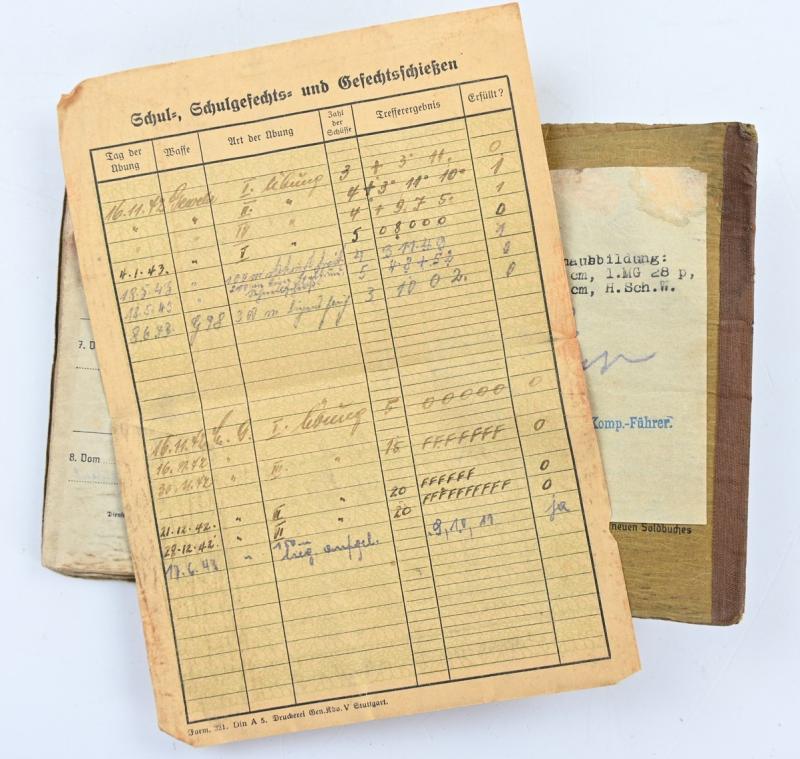 Schul-, Schulgefechts- und Gefechtsschießen
Tag der Übung Waffe Art der Übung Zahl der Schüsse Trefferergebnis Erfüllt?
16.11.42 Gewehr I. Übung 3 + 3 11. 0
" " II. " 4 + 3 11 10 1
" IV " 4 + 9. 7 5 1
4.1.43. " V " 5 0 8 0 0 0 0
18.5.43 " 4 1
18.5.43 " 5 0
8.6.43. G98 3 10 0 2. 0
16.11.42 I. Übung 5 0 0 0 0 0 0
16.11.42 " III. " 15 FFFFFFF 0
30.11.42
21.12.42. " II " 20 FFFFFF 0
29.12.42. " II " 20 FFFFFFFFFF 0
17.6.43 " 150 m lieg. aufgel. 9, 18, 11 ja
Form. 321. Din A 5. Druckerei Gen.Kdo. V Stuttgart.
7. D
8. Vom
Dienst
ausbildung:
cm, 1.MG 28 p,
cm, H.Sch.W.
Komp.-Führer.
neuen Soldbuches